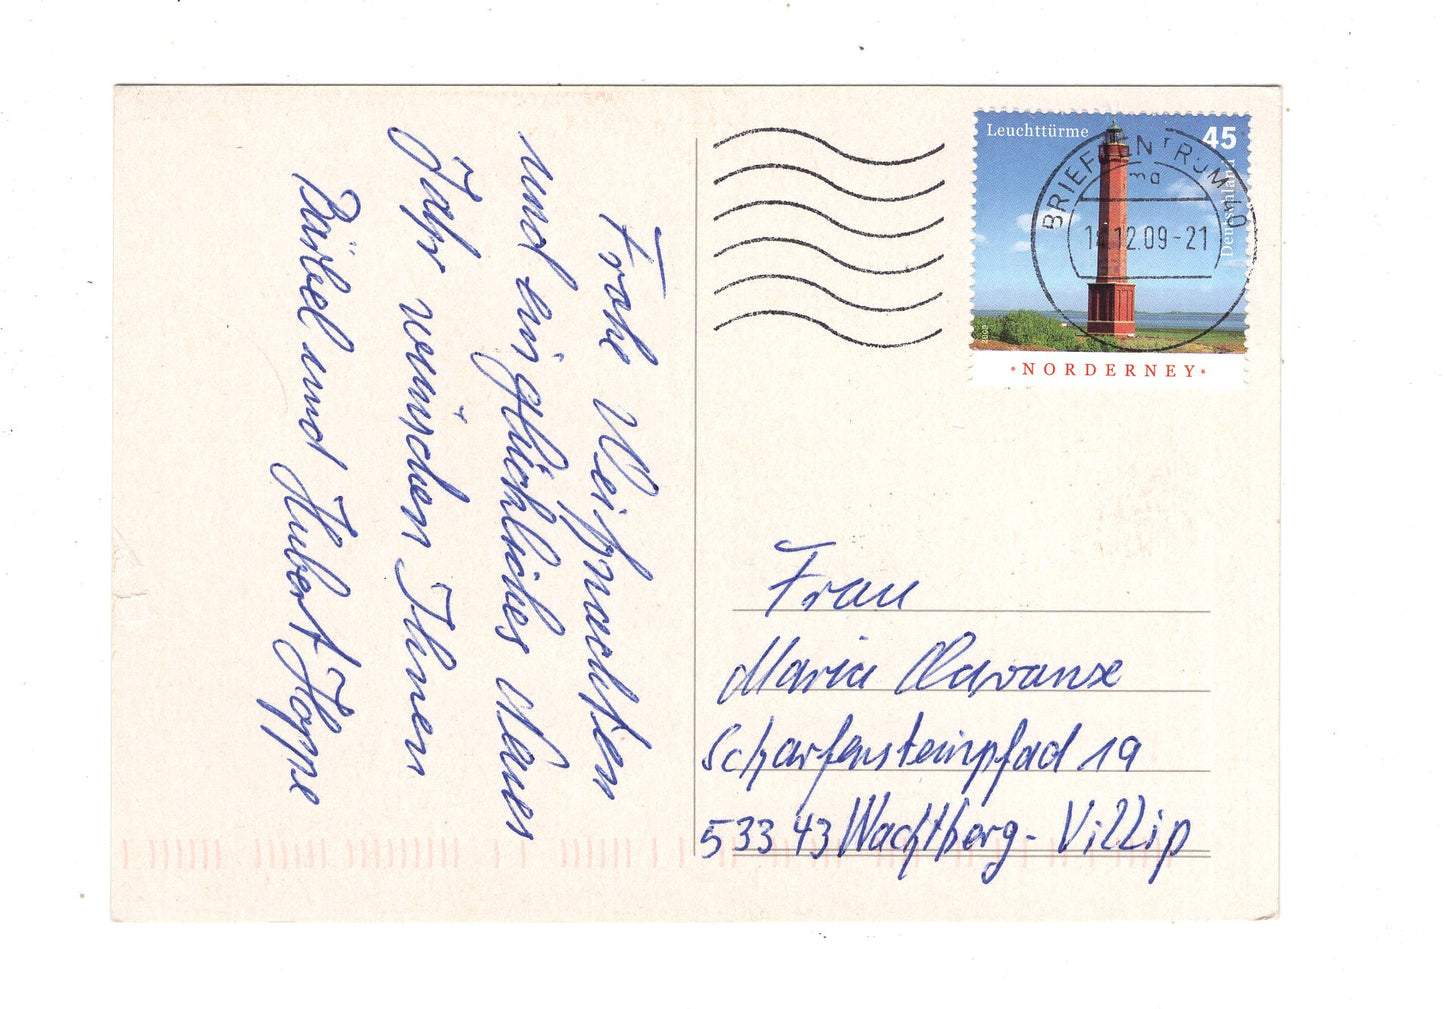 Frohe Weihnachten
und ein glückliches Neues
Jahr wünschen Ihnen
Bärbel und Hubert Hoppe
Leuchttürme
45
Deutschland
NORDERNEY
BRIEFZENTRUM 40
ma
12.09-21
Frau
Maria
Scharfensteinpfad 19
53343 Wachtberg-Villip